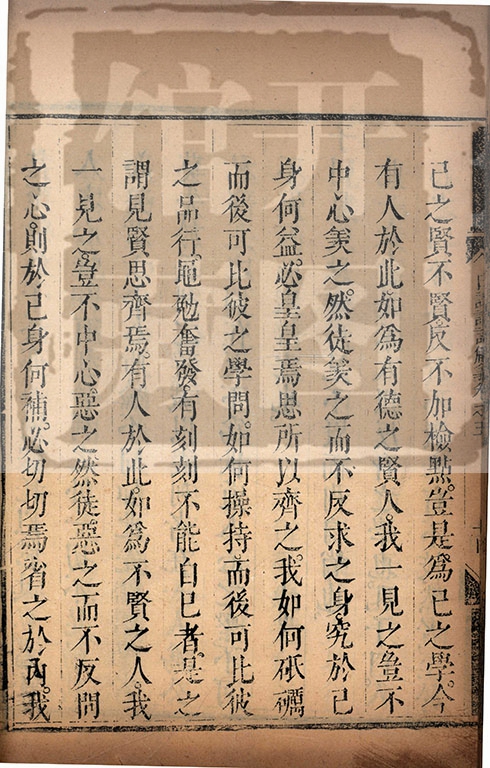 己之賢不賢反不加檢點豈是爲己之學今
有人於此如爲有德之賢人我一見之豈不
中心羡之然徒羡之而不反求之身究於己
身何益必皇皇焉思所以齊之我如何砥礪
而後可比彼之學問如何操持而後可比彼
之品行黽勉奮發有刻刻不能自已者是之
謂見賢思齊焉有人於此如爲不賢之人我
一見之豈不中心惡之然徒惡之而不反問
之心則於己身何補必切切焉省之於內我